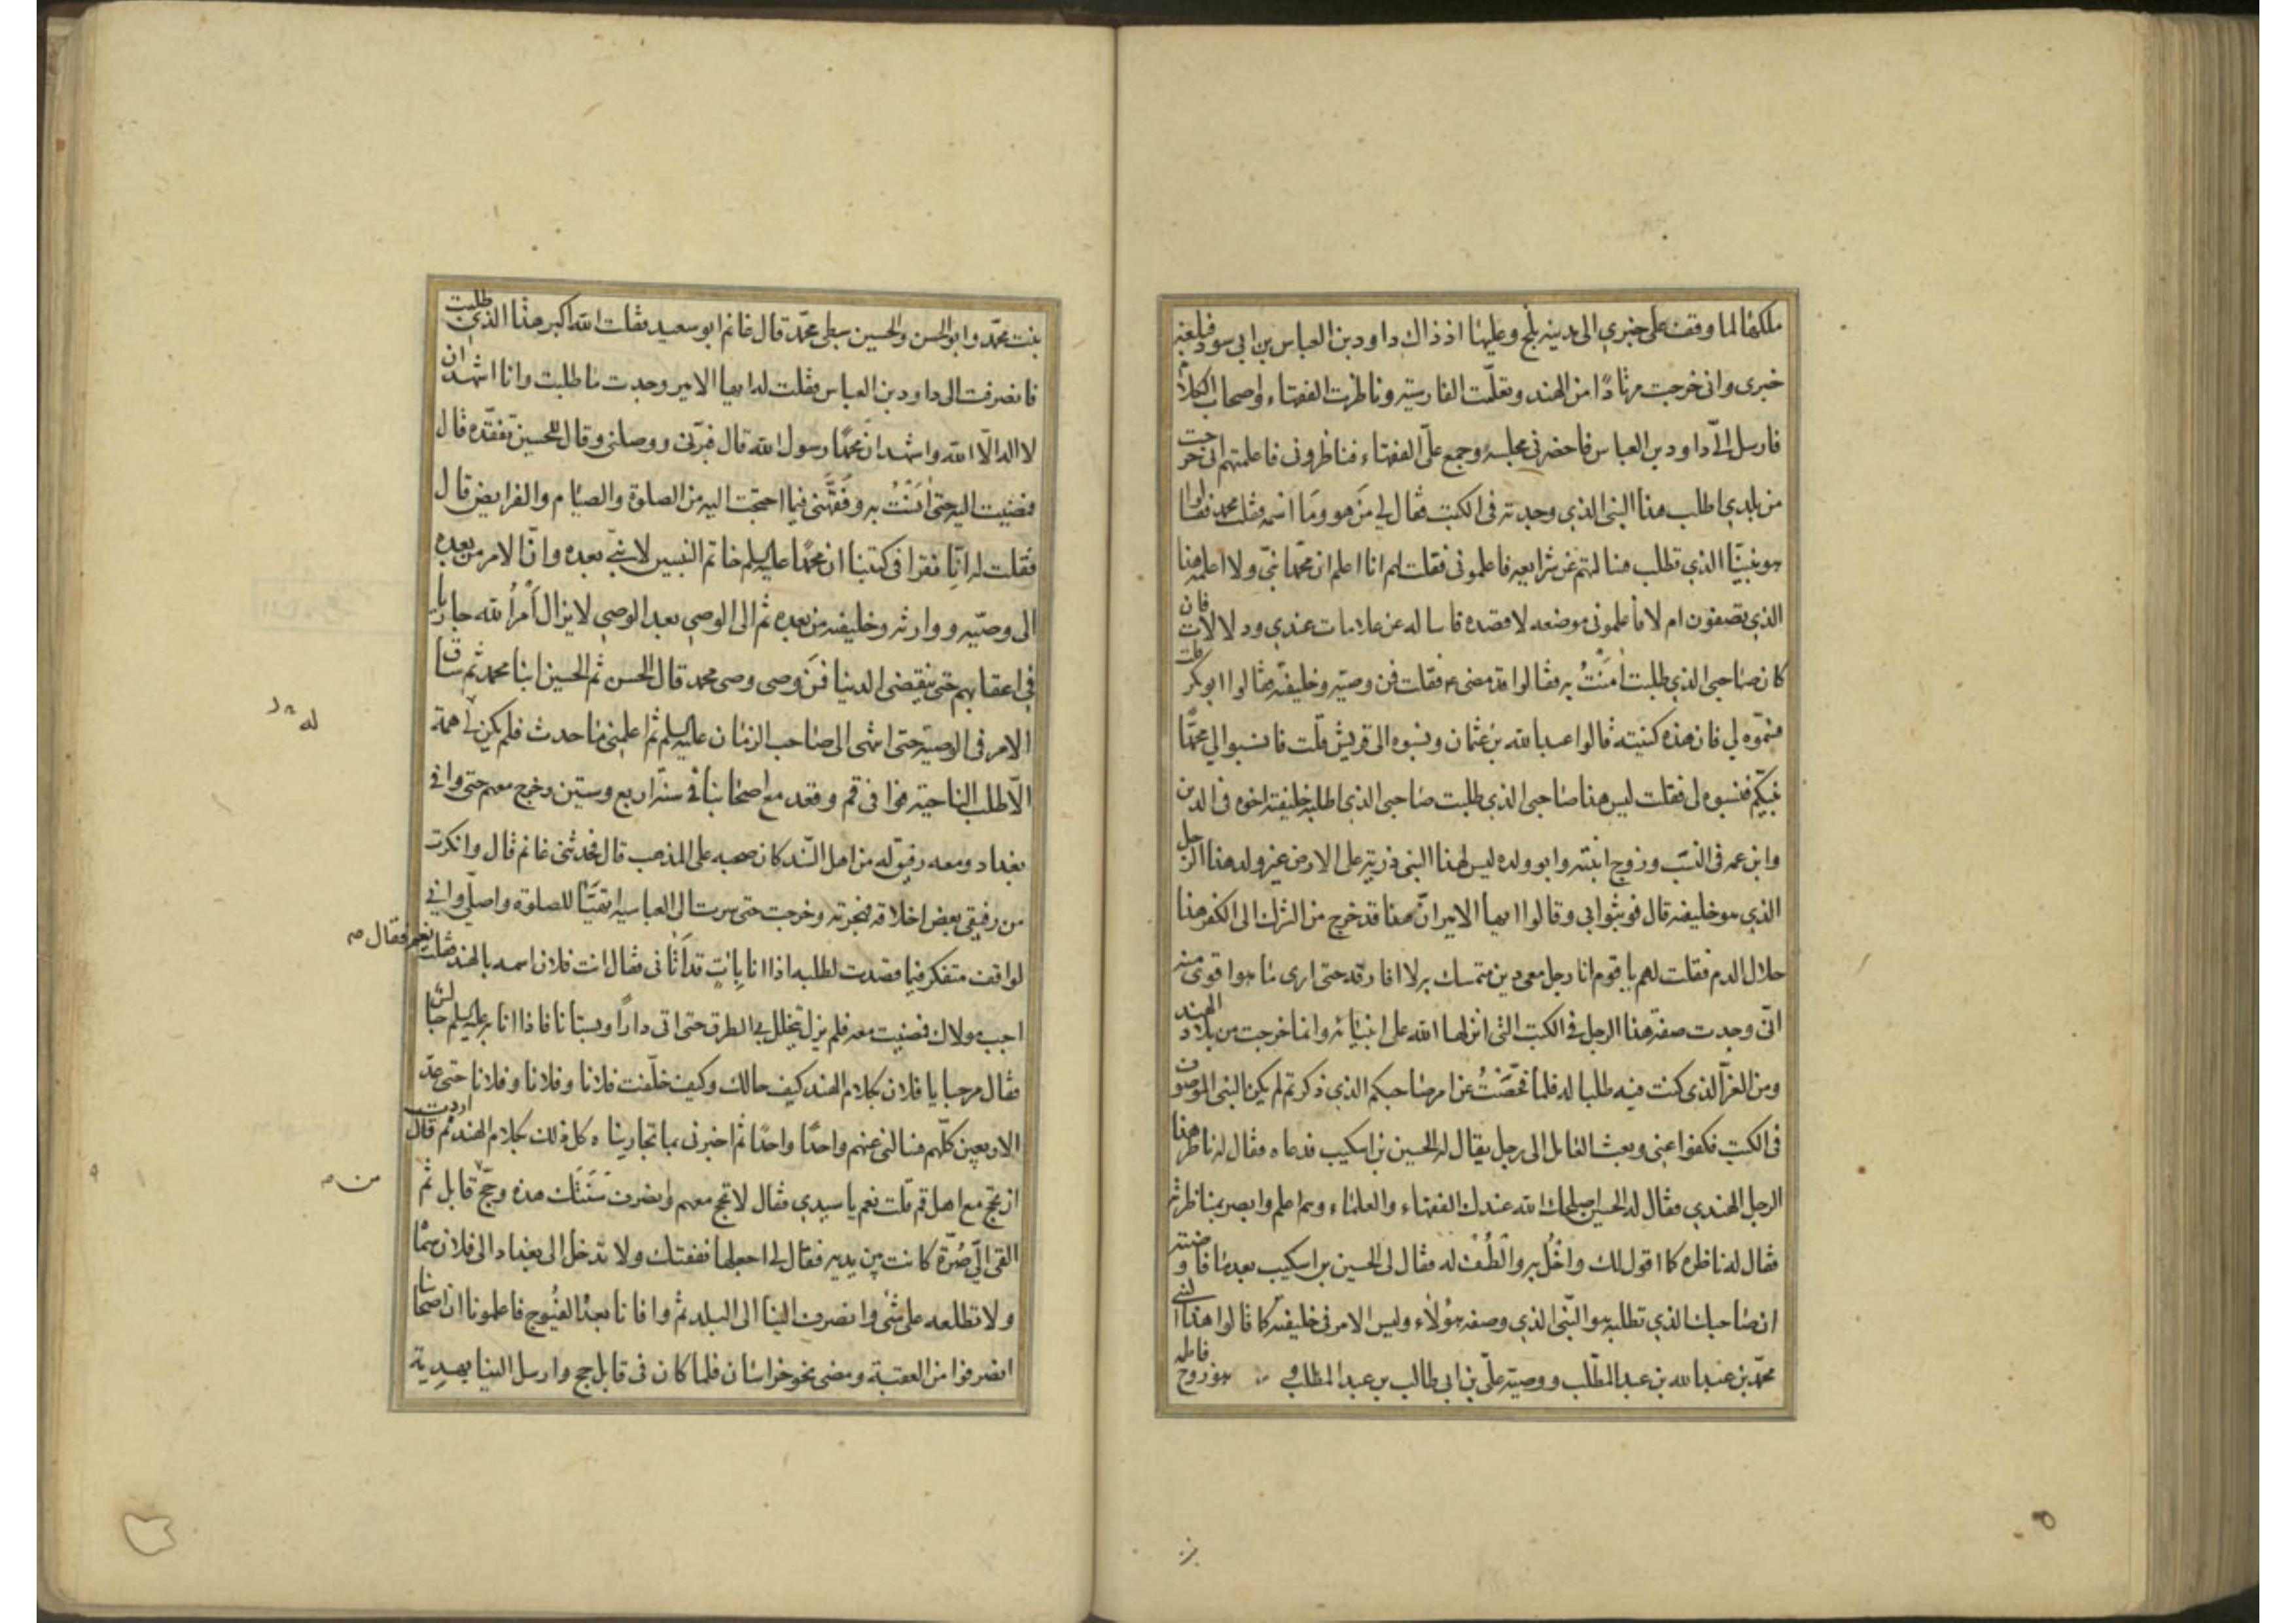 ملكها لما وقف على خبري الى مدينه بلخ وعليها اذ ذاك داود بن العباس بن ابي سود فبلغه
خبرى وانى خرجت مرتادًا من الهند وتعلّمت الفارسيّه وناظرت الفقهاء واصحاب الكلام
فارسل الىّ داود بن العباس فاحضرنى مجلسه وجمع علىّ الفقهاء فناظرونى فاعلمتهم انى خرجت
من بلدي اطلب هذا النبى الذي وجدته فى الكتب فقال لي من هو وما اسمه فقلت محمد فقالوا
هو نبيّنا الذي تطلب فسالتهم عن شرايعه فاعلمونى فقلت لهم انا اعلم ان محمّدا نبىّ ولا اعلمه هذا
الذي تصفون ام لا فاعلمونى موضعه لاقصده فاساله عن علامات عندي ودلالات فان
كان صاحبى الذي طلبت اٰمنتُ به فقالوا قد مضى ع فقلت فمن وصيّه وخليفته فقالوا ابوبكر قلت
فسمّوه لي فان هذه كنيته قالوا عبدالله بن عثمان ونسبوه الى قريش قلت فانسبوا لي محمّدا
نبيّكم فنسبوه لى فقلت ليس هذا صاحبى الذي طلبت صاحبى الذي اطلبه خليفته اخوه فى الدين
وابن عمه فى النسب وزوج ابنته وابو ولده ليس لهذا النبى ذرية على الارض غير ولد هذا الرجل
الذي هو خليفته قال فوثبوا بى وقالوا ايها الامير انّ هذا قد خرج من الشرك الى الكفر هذا
حلال الدم فقلت لهم يا قوم انا رجل معى دين متمسك به لا افارقه حتى ارى ما هو اقوى منه
انّى وجدت صفة هذا الرجل فى الكتب التى انزلها الله على انبيائه وانما خرجت من بلاد الهند
ومن العزّ الذى كنت فيه طلبا له فلما فحّصتُ عن امر صاحبكم الذي ذكرتم لم يكن النبى الموصوف
فى الكتب فكفوا عنى وبعث العامل الى رجل يقال له الحسين بن اسكيب فدعاه فقال له ناظر هذا
الرجل الهندي فقال له الحسين اصلحك الله عندك الفقهاء والعلماء وهم اعلم وابصر بمناظرته
فقال له ناظره كما اقول لك واخل به والطف له فقال لى الحسين بن اسكيب بعد ما فاوضته
ان صاحبك الذي تطلبه هو النّبى الذي وصفه هؤلاء وليس الامر فى خليفته كما قالوا هذا النبى
محمّد بن عبدالله بن عبدالمطّلب ووصيّه علىّ بن ابى طالب بن عبدالمطلب وهو زوج فاطمه
بنت محمّد وابو الحسن والحسين سبطى محمّد قال غانم ابو سعيد فقلت الله اكبر هذا الذي طلبت
فانصرفت الى داود بن العباس فقلت له ايها الامير وجدت ما طلبت وانا اشهد ان
لا اله الّا الله واشهد ان محمّدا رسول الله قال فبرّنى ووصلنى وقال للحسين تفقّده قال
فمضيت اليه حتى اٰنستُ به وفقّهنى فيما احتجت اليه من الصلوة والصيام والفرايض قال
فقلت له انّا نقرا فى كتبنا ان محمّدا عليه السلم خاتم النبيين لا نبىّ بعده وانّ الامر من بعده
الى وصيّه ووارثه وخليفته من بعده ثم الى الوصي بعد الوصي لا يزال أمرُ الله جاريا
فى اعقابهم حتى تنقضى الدنيا فمن وصى وصى محمد قال الحسن ثم الحسين ابنا محمد ثم ساق
الامر فى الوصية حتى انتهى الى صاحب الزمان عليه السلم ثم اعلمنى ما حدث فلم يكن لي همة
الّا طلب الناحية فوافى قم وقعد مع اصحابنا فى سنة اربع وستين وخرج معهم حتى وافى
بغداد ومعه رفيق له من اهل السّند كان صحبه على المذهب قال فحدثنى غانم قال وانكرت
من رفيقى بعض اخلاقه فهجرته وخرجت حتى سرت الى العباسيه اتهيّا للصلوة واصلّى وانى
لواقف متفكر فيما قصدت لطلبه اذا انا باٰتٍ قد أتانى فقال انت فلان اسمه بالهند فقلت نعم فقال
اجب مولاك فمضيت معه فلم يزل يتخلل بي الطرق حتى اتى دارًا وبستانا فاذا انا به عليه السلم جالس
فقال مرحبا يا فلان بكلام الهند كيف حالك وكيف خلّفت فلانا وفلانا وفلانا حتى عدّ
الاربعين كلّهم فسالنى عنهم واحدًا واحدًا ثم اخبرنى بما تجاريناه كل ذلك بكلام الهند ثم قال اردت
ان تحج مع اهل قم قلت نعم يا سيدي فقال لا تحج معهم وانصرف سنتك هذه وحجّ قابل ثم
القى الىّ صُرّة كانت بين يديه فقال لي اجعلها نفقتك ولا تدخل الى بغداد الى فلان سمّاه
ولا تطلعه على شئ وانصرف الينا الى البلد ثم وافانا بعدُ الفيوج فاعلمونا ان اصحابنا
انصرفوا من العقبة ومضى نحو خراسان فلما كان فى قابل حج وارسل الينا بهدية
له